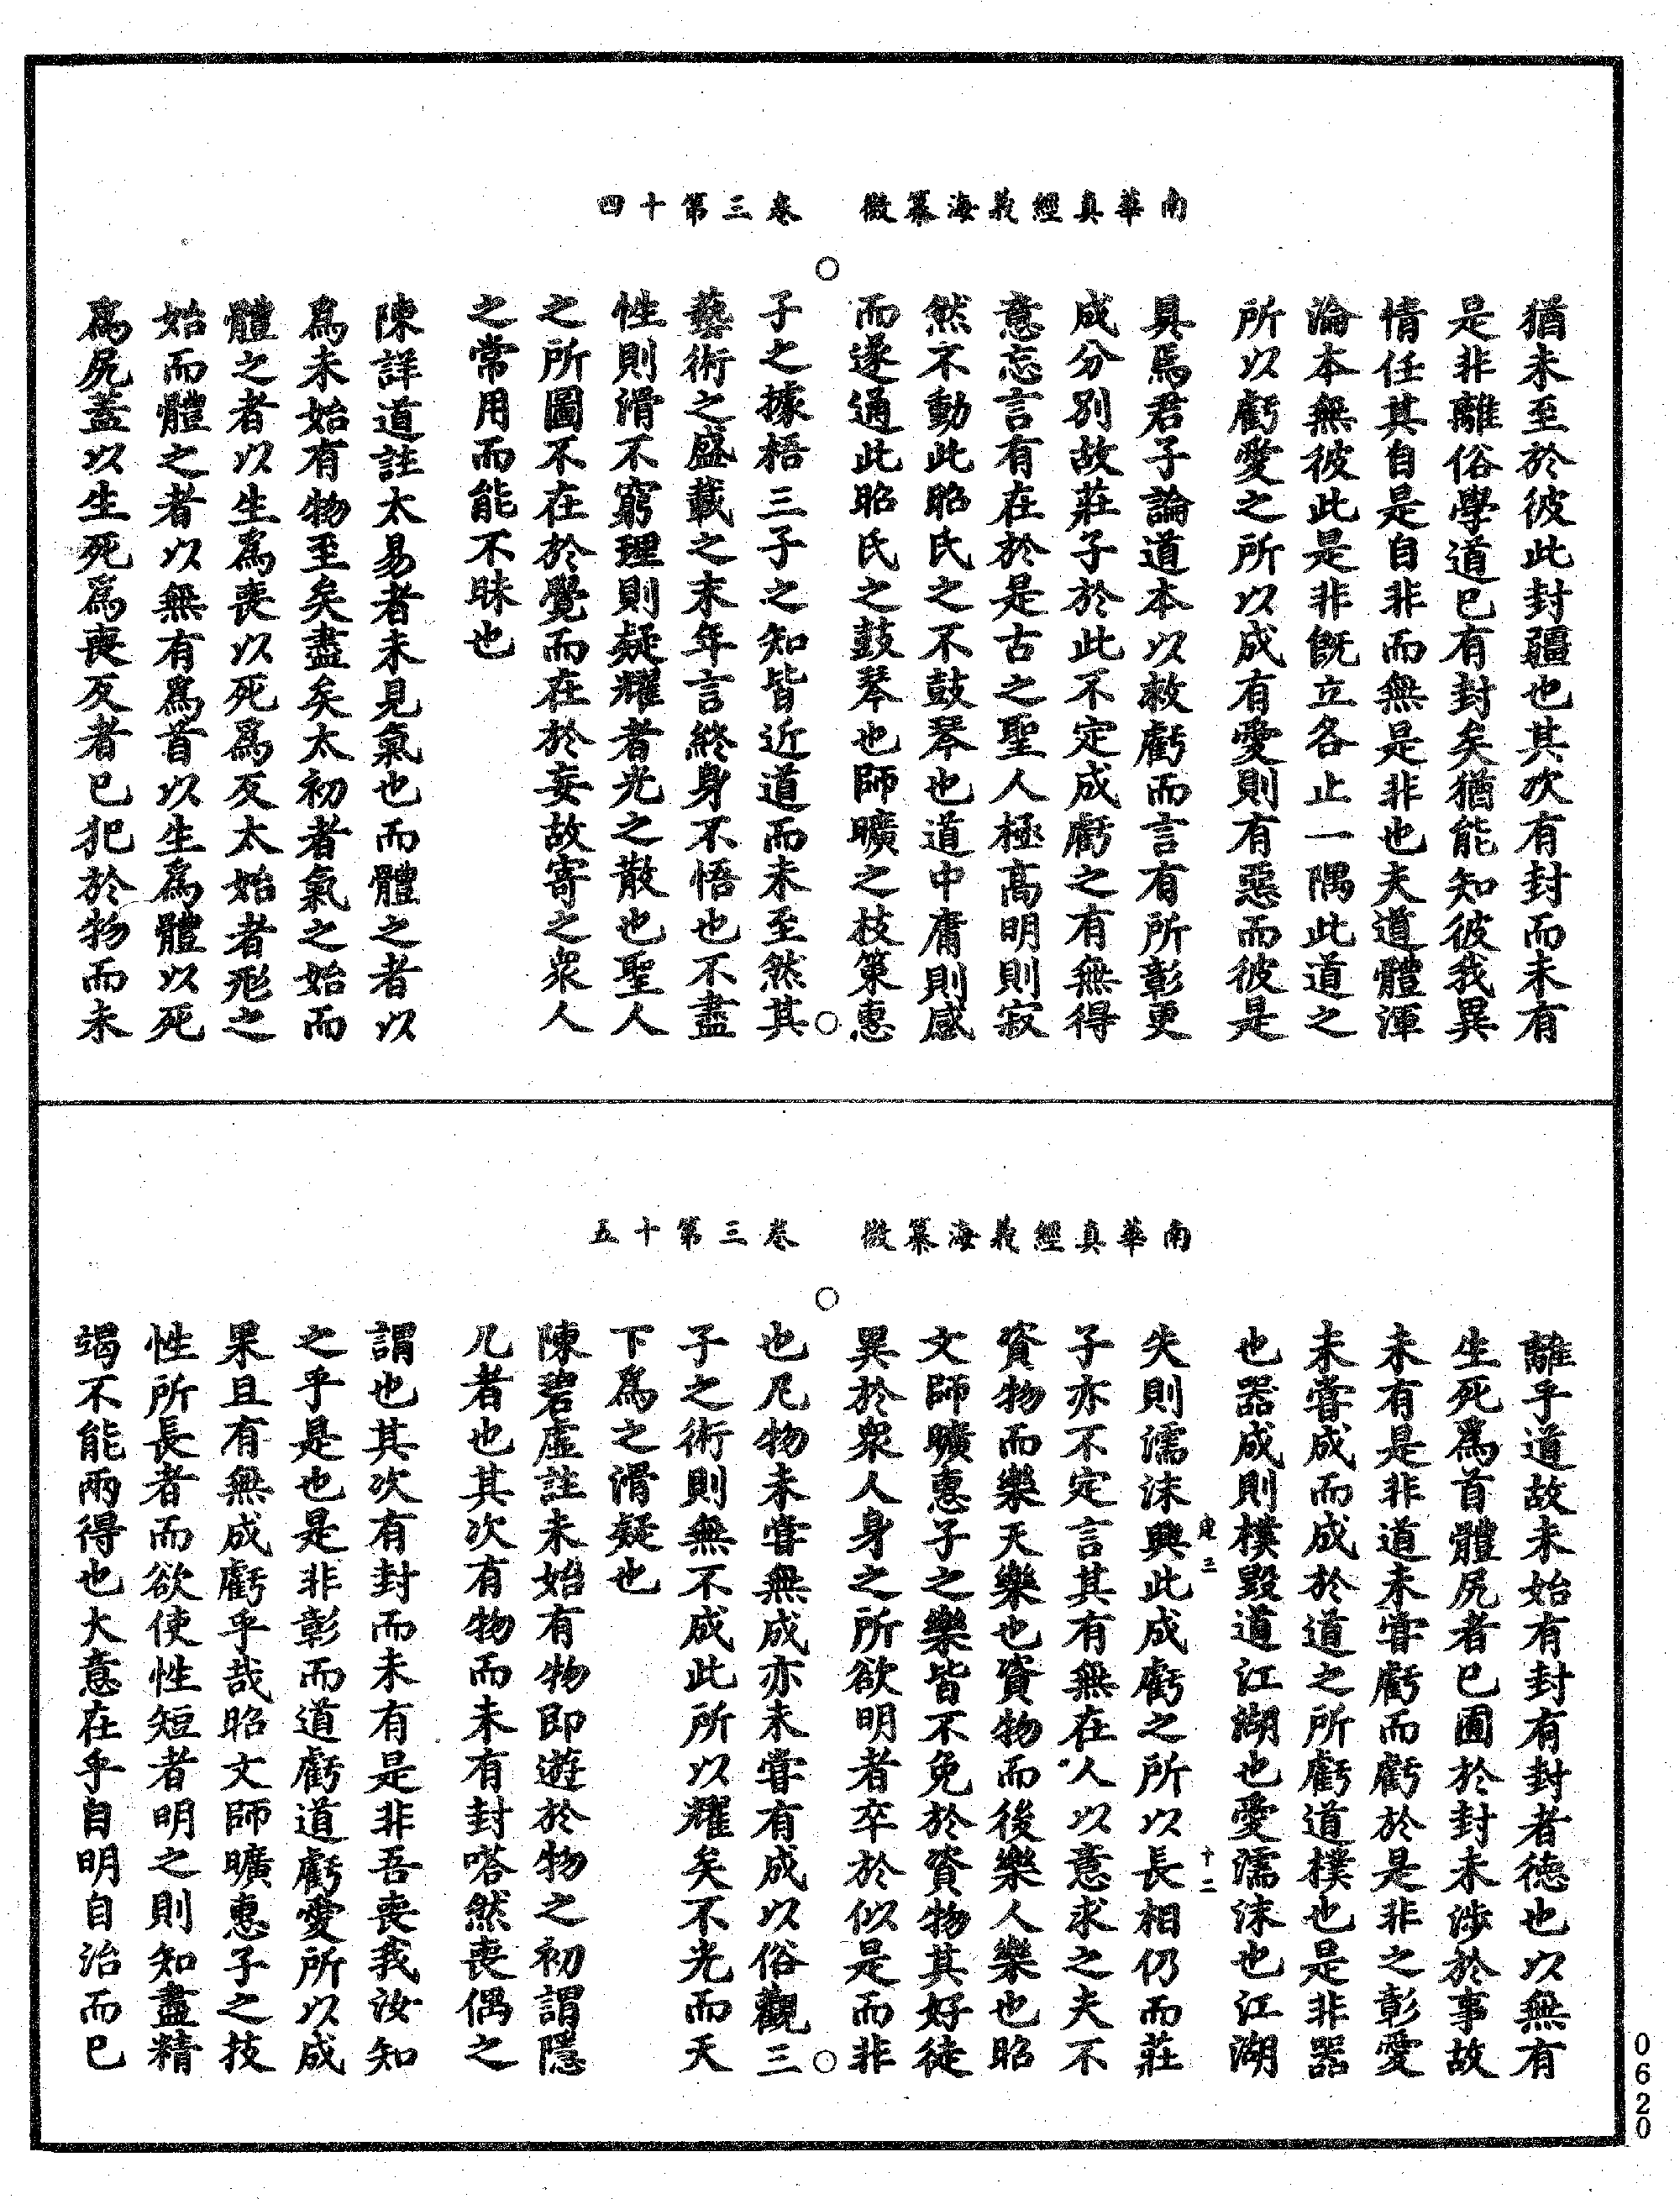 南華真經義海纂微　卷三第十四
猶未至於彼此封疆也其次有封而未有
是非離俗學道已有封矣猶能知彼我異
情任其自是自非而無是非也夫道體渾
淪本無彼此是非旣立各止一隅此道之
所以虧愛之所以成有愛則有惡而彼是
具焉君子論道本以救虧而言有所彰更
成分別故莊子於此不定成虧之有無得
意忘言有在於是古之聖人極高明則寂
然不動此昭氏之不鼓琴也道中庸則感
而遂通此昭氏之鼓琴也師曠之枝策惠
子之據梧三子之知皆近道而未至然其
藝術之盛載之末年言終身不悟也不盡
性則滑不窮理則疑耀者光之散也聖人
之所圖不在於覺而在於妄故寄之衆人
之常用而能不昧也
陳詳道註太易者未見氣也而體之者以
爲未始有物至矣盡矣太初者氣之始而
體之者以生爲喪以死爲反太始者形之
始而體之者以無有爲首以生爲體以死
爲尻蓋以生死爲喪反者已犯於物而未
南華真經義海纂微　卷三第十五
離乎道故未始有封有封者德也以無有
生死爲首體尻者已囿於封未涉於事故
未有是非道未甞虧而虧於是非之彰愛
未甞成而成於道之所虧道樸也是非器
也器成則樸毀道江湖也愛濡沫也江湖
失則濡沫興此成虧之所以長相仍而莊
子亦不定言其有無在人以意求之夫不
資物而樂天樂也資物而後樂人樂也昭
文師曠惠子之樂皆不免於資物其好徒
異於衆人身之所欲明者卒於似是而非
也凡物未甞無成亦未甞有成以俗觀三
子之術則無不成此所以耀矣不光而天
下爲之滑疑也
陳碧虛註未始有物即遊於物之初謂隱
几者也其次有物而未有封嗒然喪偶之
謂也其次有封而未有是非吾喪我汝知
之乎是也是非彰而道虧道虧愛所以成
果且有無成虧乎哉昭文師曠惠子之技
性所長者而欲使性短者明之則知盡精
竭不能兩得也大意在乎自明自治而已
建三
十二
0620